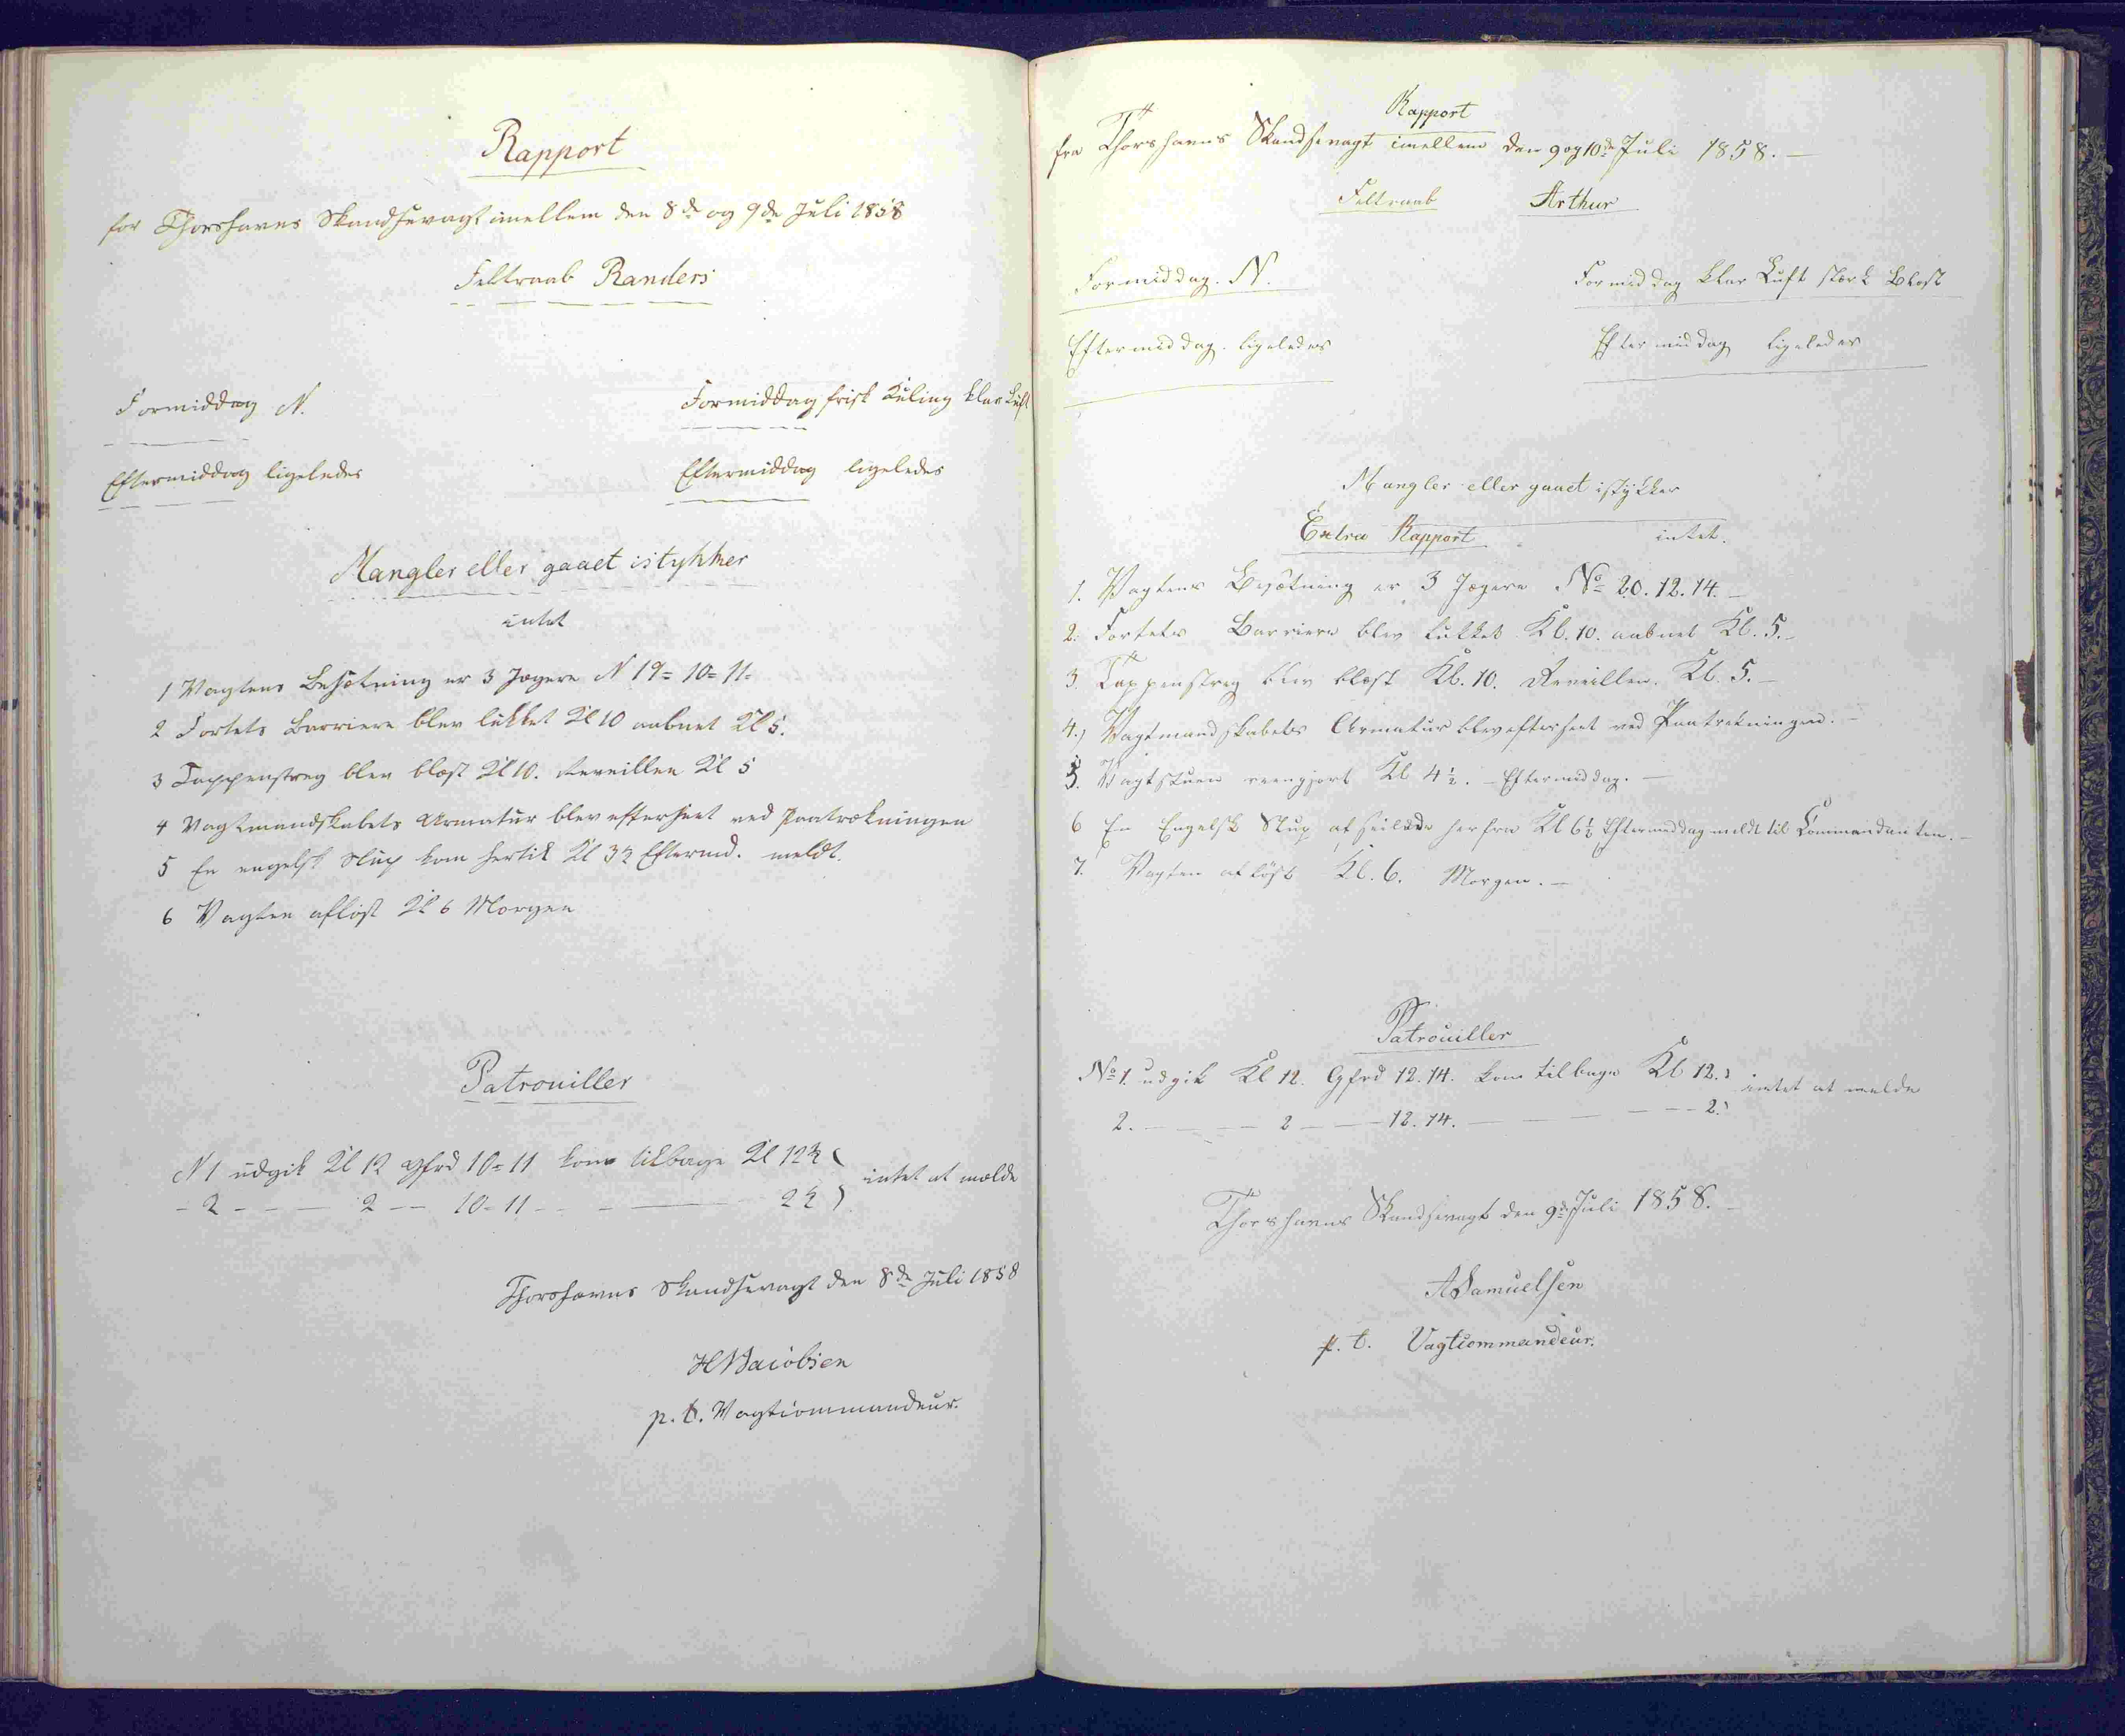 Rapport
for Thorshavns Skandsevagt imellem den 8de og 9de Juli 1858
Feltraab Randers
Formiddag N.
Formiddag frisk Kuling klar Luft
Eftermiddag ligeledes
Eftermiddag ligeledes
Mangler eller gaaet istykker
intet
1 Vagtens Besætning er 3 Jægere N 19= 10= 11=
2 Fortets Barriere blev lukket Kl 10 aabnet Kl 5.
3 Tappenstreg blev blæst Kl 10. Reveillen Kl 5
4 Vagtmandskabets Armatur blev efterseet ved Paatrækningen
5 En engelsk Slup kom hertil Kl 3½ Eftermd. meldt.
6 Vagten afløst Kl 6 Morgen
Patrouiller
N 1 udgik Kl 12 Gfrd 10=11 kom tilbage Kl 12½
intet at melde
- 2 - - - 2 - - 10=11 - - - 2½
Thorshavns Skandsevagt den 8de Juli 1858
HJacobsen
p. t. Vagtcommandeur.
Rapport
fra Thorshavns Skandsevagt imellem den 9 og 10de Juli 1858. -
Feltraab Arthur
Formiddag. N.
Formiddag klar Luft stærk Blæst
Eftermiddag. ligeledes
Eftermiddag ligeledes
Mangler eller gaaet istykker
Extra Rapport intet.
1. Vagtens Besætning er 3 Jægere No 20. 12. 14. -
2. Fortets Barriere blev lukket Kl. 10. aabnet Kl. 5. -
3. Tappenstreg blev blæst Kl. 10. Reveillen. Kl. 5. -
4.) Vagtmandskabets Armatur blev efterseet ved Paatrækningen. -
5. Vagtstuen reengjort Kl 4½. - Eftermiddag. -
6 En Engelsk Slup afseilede herfra Kl 6½ Eftermiddag meldt til Commandanten. -
7. Vagten afløst Kl. 6. Morgen. -
Patrouiller
No 1. udgik Kl 12. Gfrd 12. 14. kom tilbage Kl 12.½
intet at melde
2. - - - 2 - - 12. 14. - - - - 2.½
Thorshavns Skandsevagt den 9de Juli 1858. -
ASamuelsen
p. t. Vagtcommandeur.